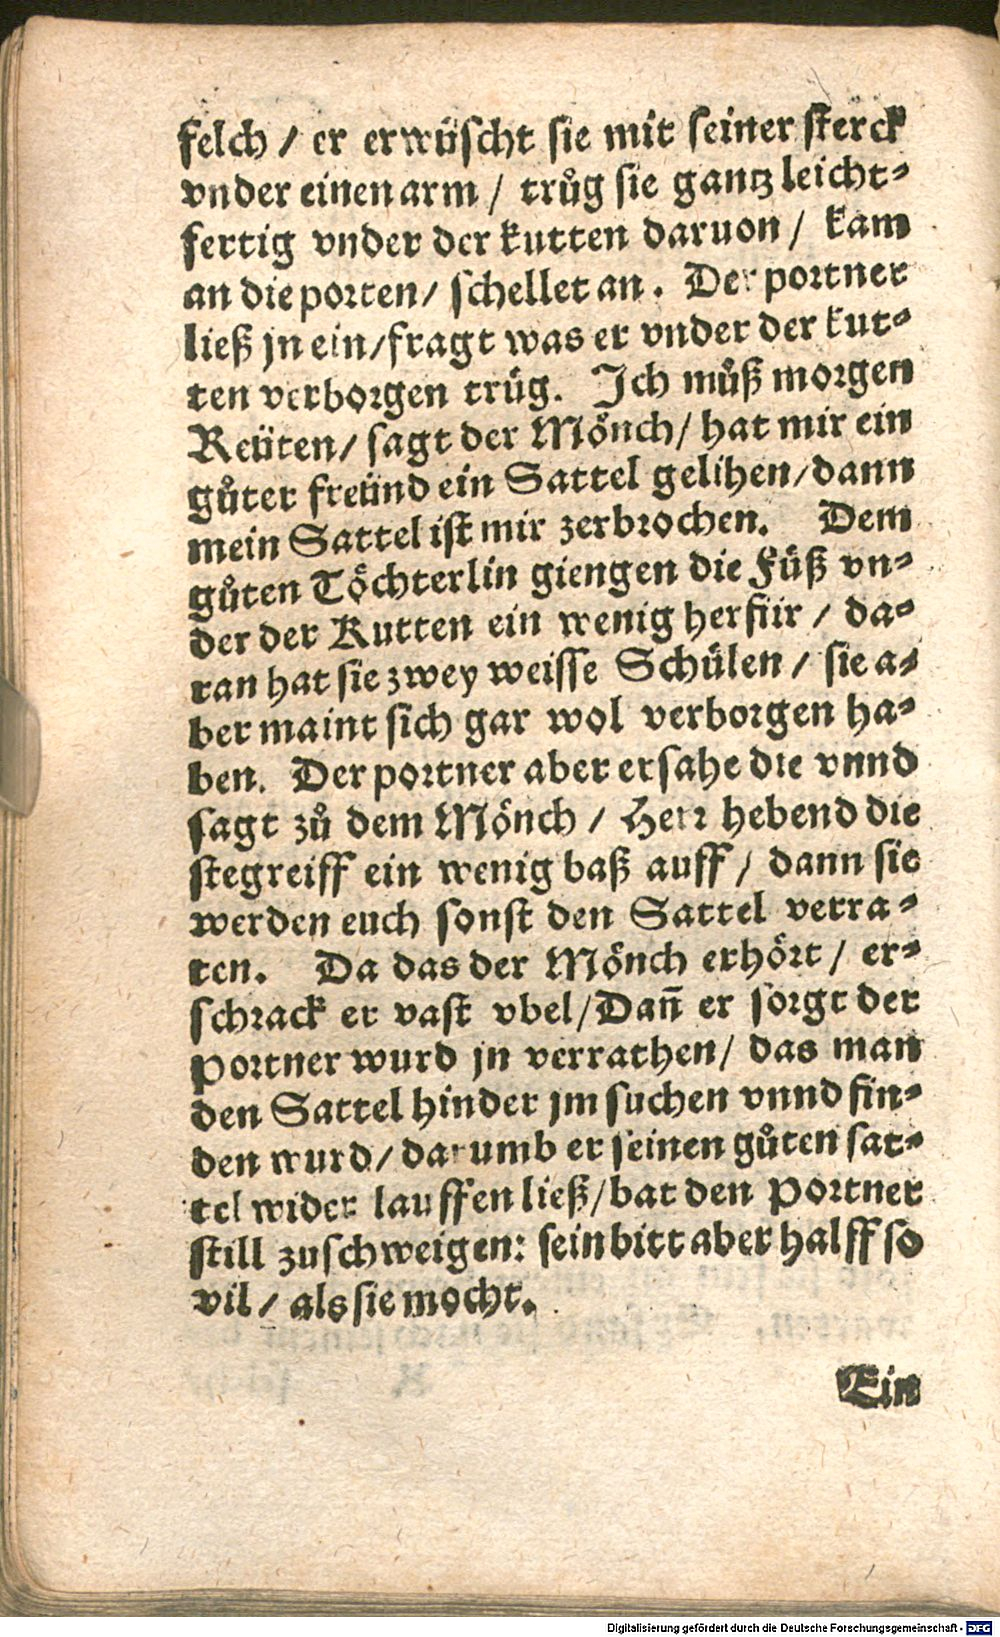 felch / er erwüscht sie mit seiner sterck
vnder einen arm / trůg sie gantz leicht-
fertig vnder der kutten daruon / kam
an die porten / schellet an. Der portner
ließ jn ein / fragt was er vnder der kut-
ten verborgen trüg. Ich můß morgen
Reüten / sagt der Mönch / hat mir ein
gůter freünd ein Sattel gelihen / dann
mein Sattel ist mir zerbrochen. Dem
gůten Töchterlin giengen die Füß vn-
der der Kutten ein wenig herfür / da-
ran hat sie zwey weisse Schülen / sie a-
ber maint sich gar wol verborgen ha-
ben. Der portner aber ersahe die vnnd
sagt zů dem Mönch / Herr hebend die
stegreiff ein wenig baß auff / dann sie
werden euch sonst den Sattel verra-
ten. Da das der Mönch erhört / er-
schrack er vast vbel / Dañ er sorgt der
Portner wurd jn verrathen / das man
den Sattel hinder jm suchen vnnd fin-
den wurd / darumb er seinen gůten sat-
tel wider lauffen ließ / bat den Portner
still zuschweigen: sein bitt aber halff so
vil / als sie mocht.
Ein
Digitalisierung gefördert durch die Deutsche Forschungsgemeinschaft - DFG